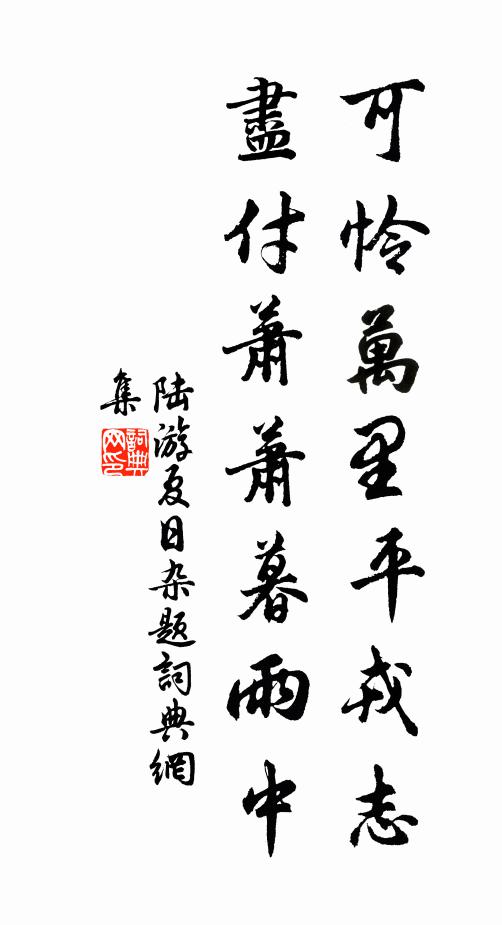 可怜萬里平戎志
盡付蕭蕭暮雨中
陆游夏日杂题詞典網
集
詞典网印